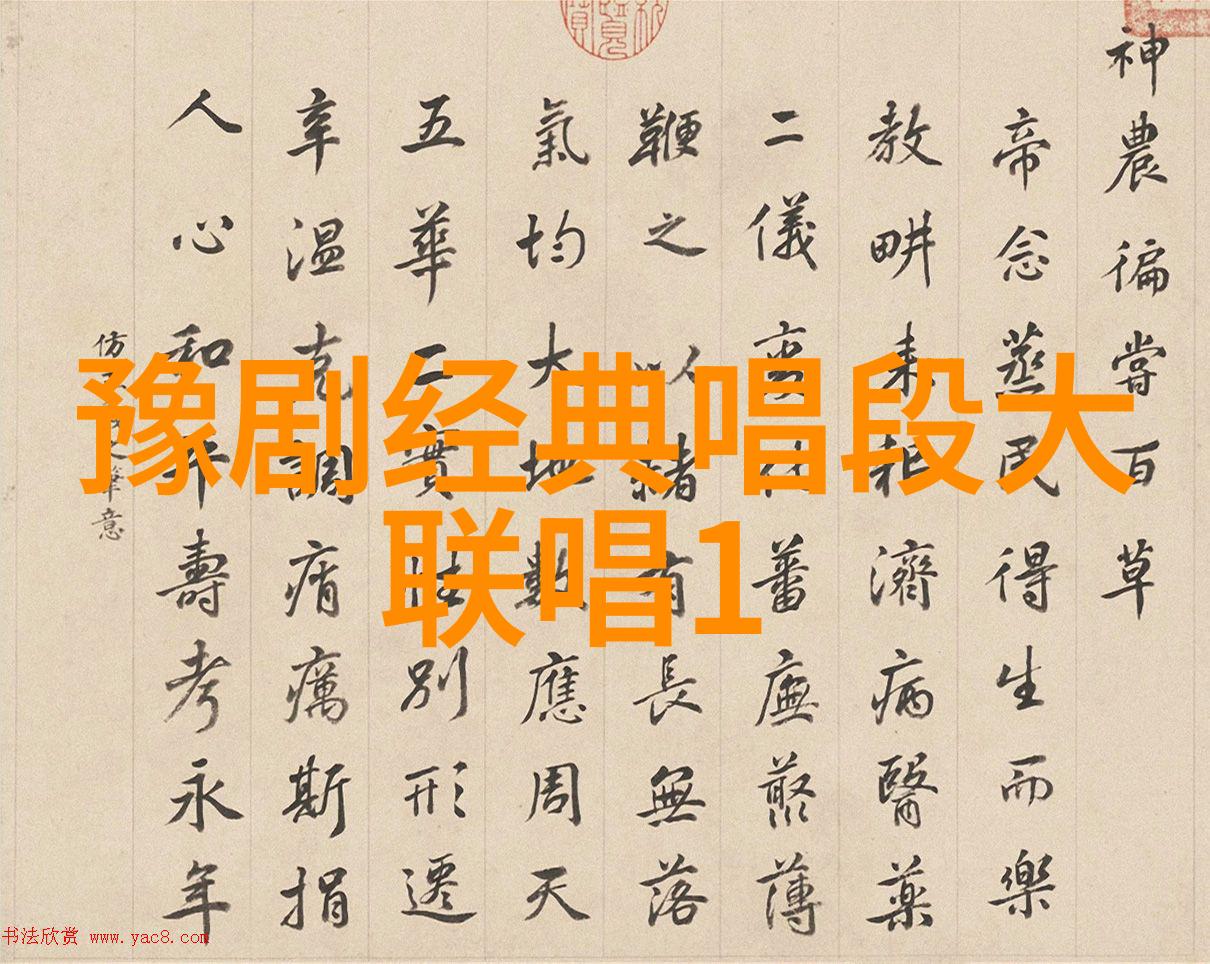 豫剧经典唱段大
联唱1
神農徧嘗百草
帝念蒸民得生而樂
教畊耒耜濟病醫薬
二儀蕃廡藂薄
鞭之以緒有長無落
氣均大地數應周天
五華二實性別形遷
辛温克調痟癘斯捐
人心和平壽考永年
仿筆意
书法欣赏 www.yac8.com